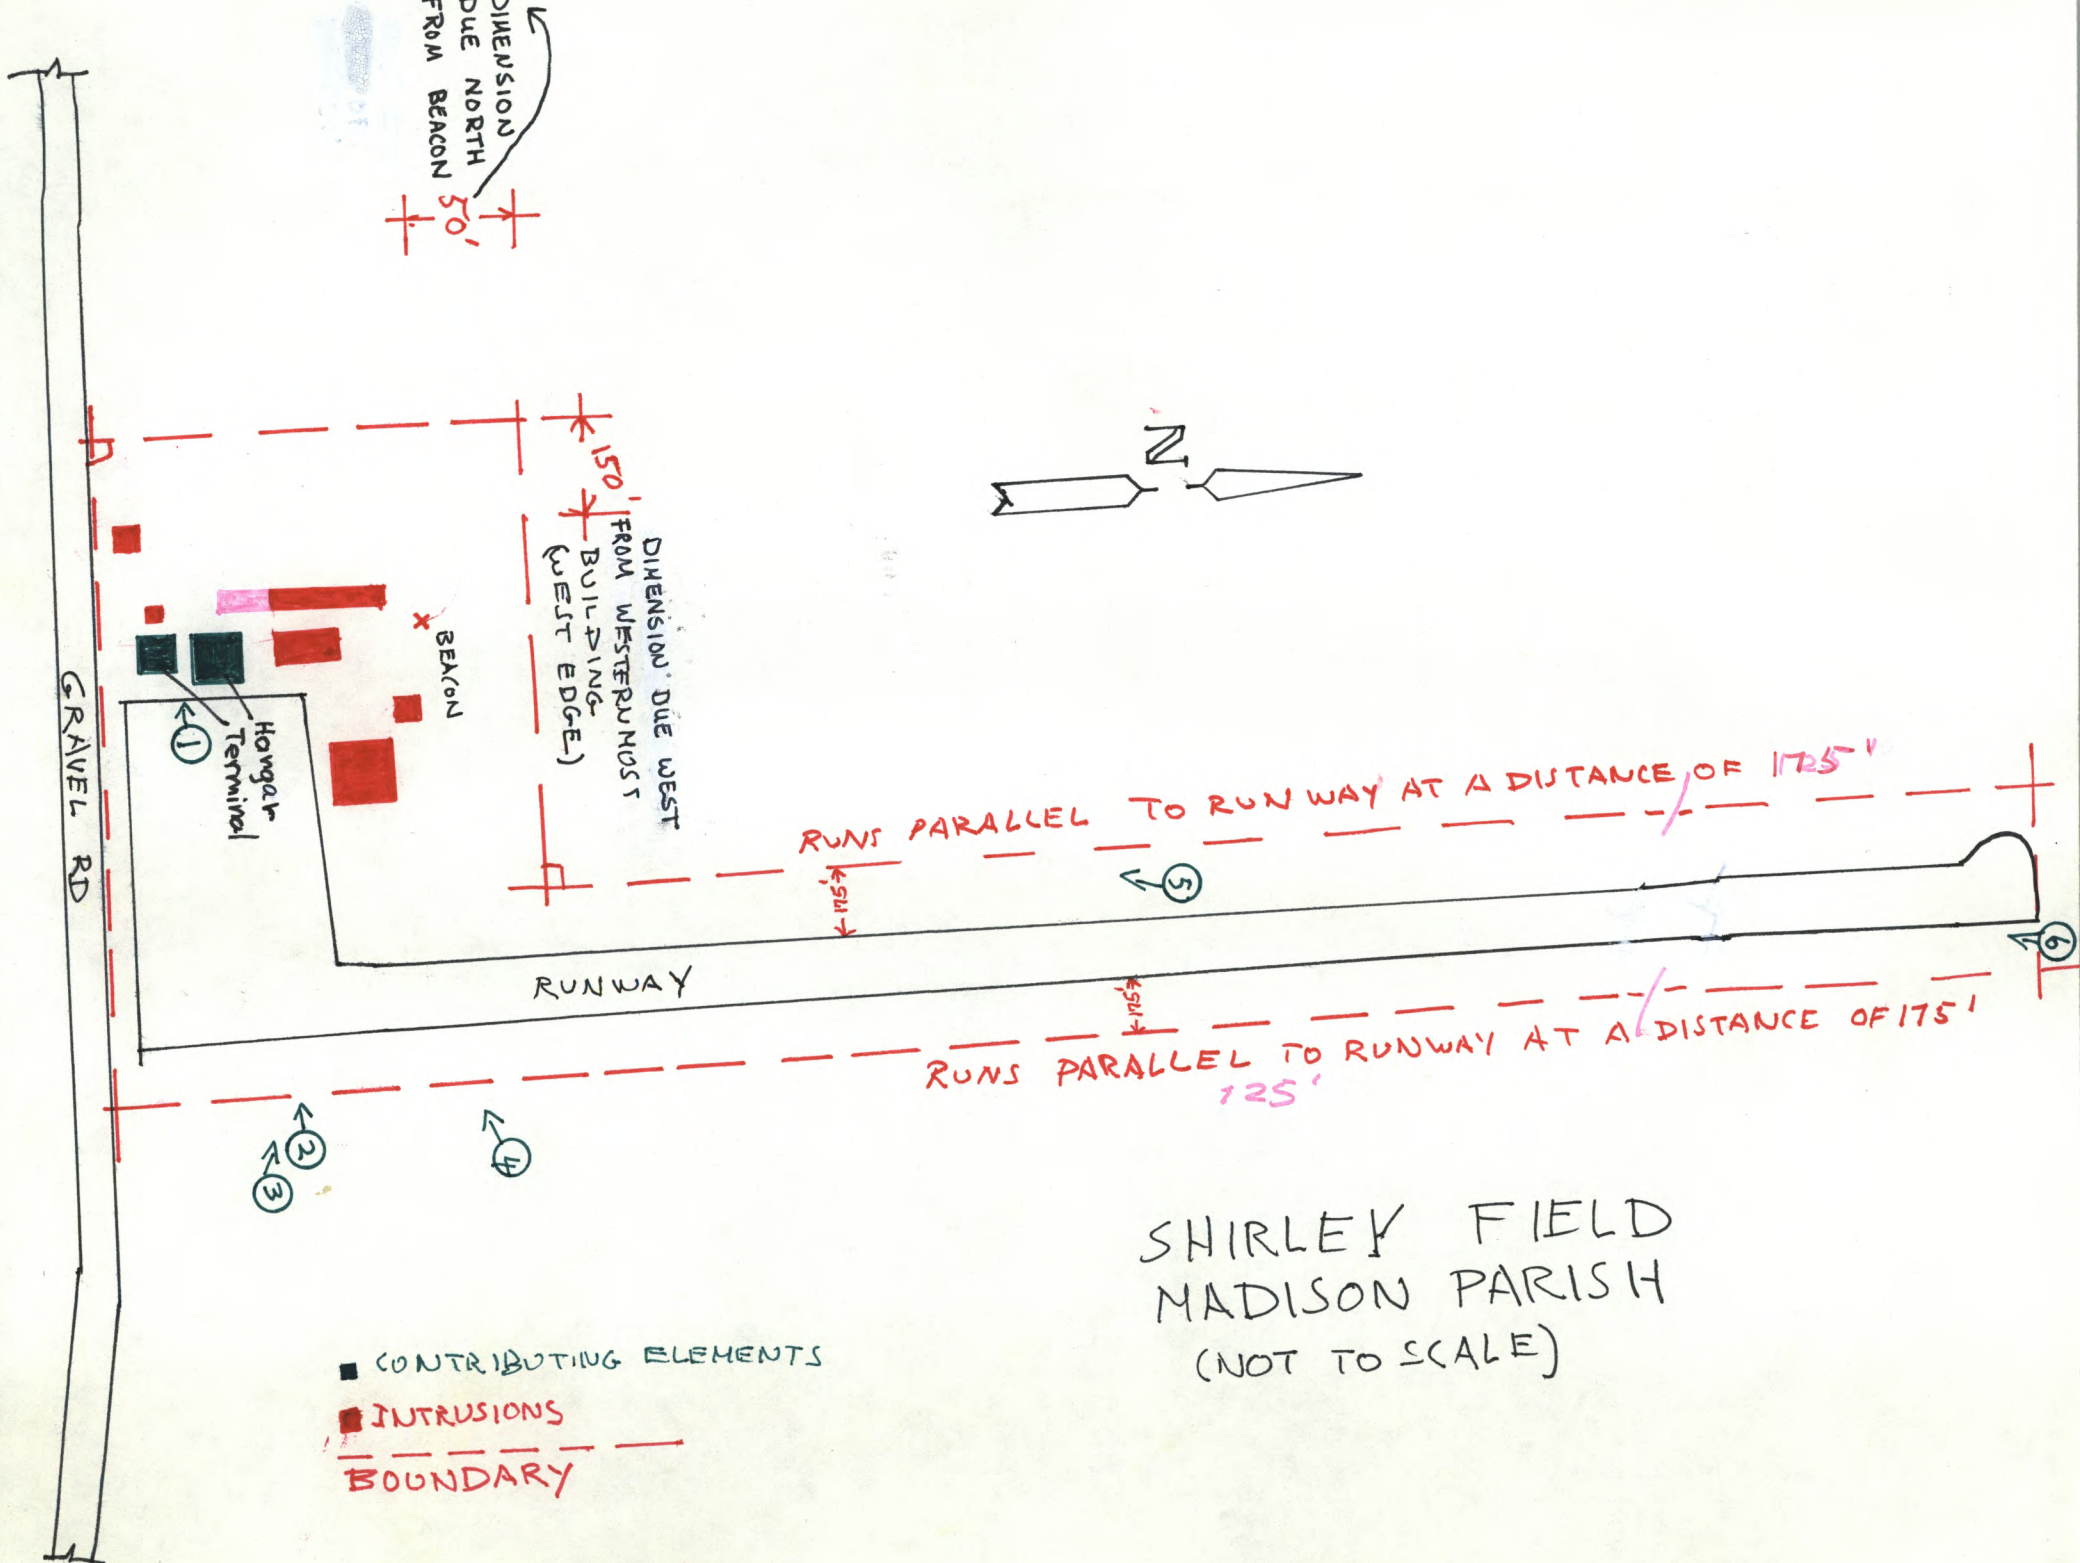 DIMENSION
DUE NORTH
FROM BEACON
50'
150'
DIMENSION DUE WEST
FROM WESTERNMOST
BUILDING
(WEST EDGE)
N
BEACON
Hangar
Terminal
1
GRAVEL RD
RUNS PARALLEL TO RUNWAY AT A DISTANCE OF
175'
5
6
RUNWAY
175'
RUNS PARALLEL TO RUNWAY AT A DISTANCE OF 175'
125'
2
3
4
SHIRLEY FIELD
MADISON PARISH
(NOT TO SCALE)
CONTRIBUTING ELEMENTS
INTRUSIONS
BOUNDARY